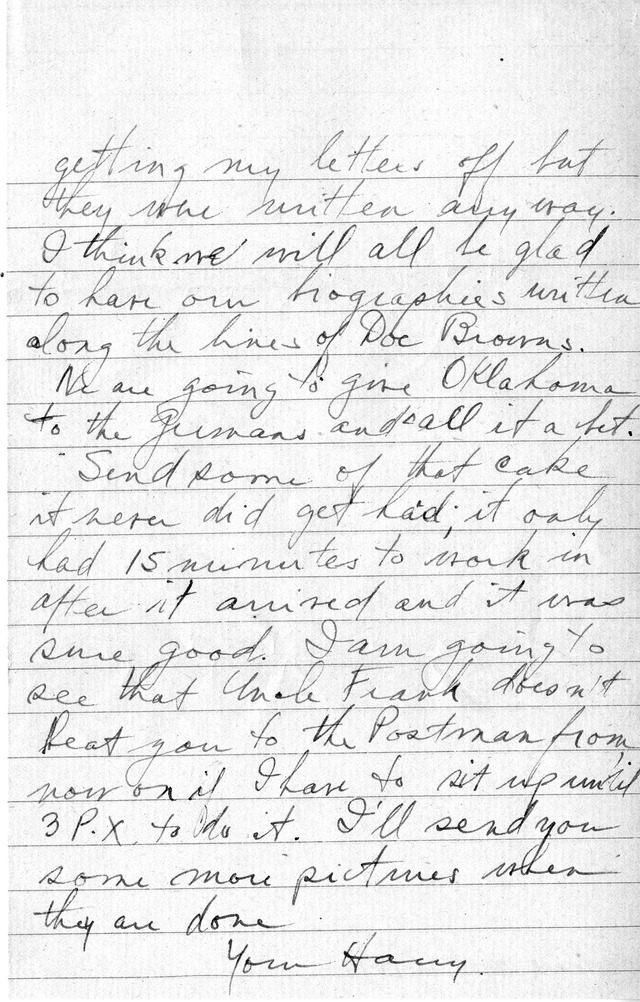 getting my letters off but
they were written anyway.
I think we will all be glad
to have our biographies written
along the lines of Doc Browns.
We are going to give Oklahoma
to the Germans and call it a bet.
Send some of that cake
it never did get bad; it only
had 15 minutes to work in
after it arrived and it was
sure good. I am going to
see that Uncle Frank doesn't
beat you to the Postman from
now on if I have to sit up until
3 P.X. to do it. I'll send you
some more pictures when
they are done
Your Harry.